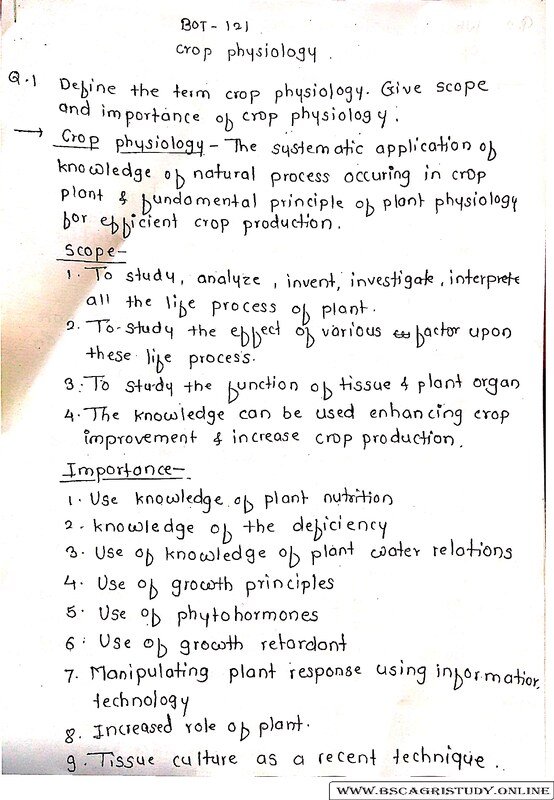 BOT - 121
Crop physiology.
Q.1 Define the term crop physiology. Give scope
and importance of crop physiology.
→ Crop physiology - The systematic application of
knowledge of natural process occuring in crop
plant & fundamental principle of plant physiology
for efficient crop production.
Scope-
1. To study, analyze, invent, investigate, interprete
all the life process of plant.
2. To study the effect of various factor upon
these life process.
3. To study the function of tissue & plant organ
4. The knowledge can be used enhancing crop
improvement & increase crop production.
Importance-
1. Use knowledge of plant nutrition
2. knowledge of the deficiency
3. Use of knowledge of plant water relations
4. Use of growth principles
5. Use of phytohormones
6. Use of growth retardant
7. Manipulating plant response using information
technology
8. Increased role of plant.
9. Tissue culture as a recent technique.
WWW.BSCAGRISTUDY.ONLINE